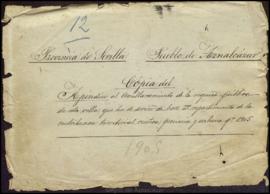 12
Provincia de Sevilla Pueblo de Aznalcázar
Cópia del
Apéndice al Amillaramiento de la riqueza pública
de esta villa, que ha de servir de base al repartimiento de la
contribucion territorial rústica, pecuaria y urbana pª 1905
1905